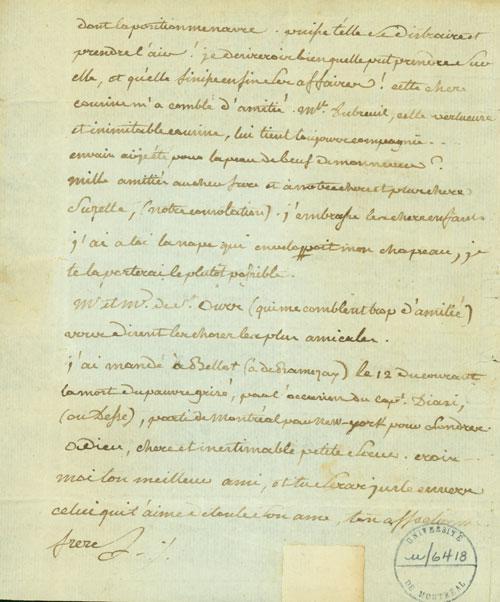 dont la position me navre. puisse t'elle se distraire et
prendre l'air! je desirerois bien quelle put prendre sur
elle, et qu'elle finisse enfin ses affaires! cette chere
cousine m'a comblé d'amitié. Mlle Dubreuil, cette vertueuse
et inimitable cousine, lui tient toujours compagnie..
envain ai je été pour la peau de beuf de monneveu?
mille amitiés au cher frere et à notre chere et plus chere
Suzette, (notre consolation). j'embrasse les chers enfans
j'ai a toi la nape qui enveloppoit mon chapeau, je
te la porterai le plutot possible.
Mr et Me. de St. Ours (qui me comblent trop d'amitié)
vous disent les choses les plus amicales.
j'ai mandé à Bellot (à de Ramezay) le 12 du courant
la mort du pauvre grisé, par l'occasion du capt. Diasi,
(ou Desse), parti de Montréal pour New-york pour Londres
adieu, chere et inestimable petite soeur. crois
moi ton meilleur ami, et tu seras juste envers
celui qui t'aime de toute son ame, ton affectionné
frere
UNIVERSITÉ
u/6418
DE MONTRÉAL